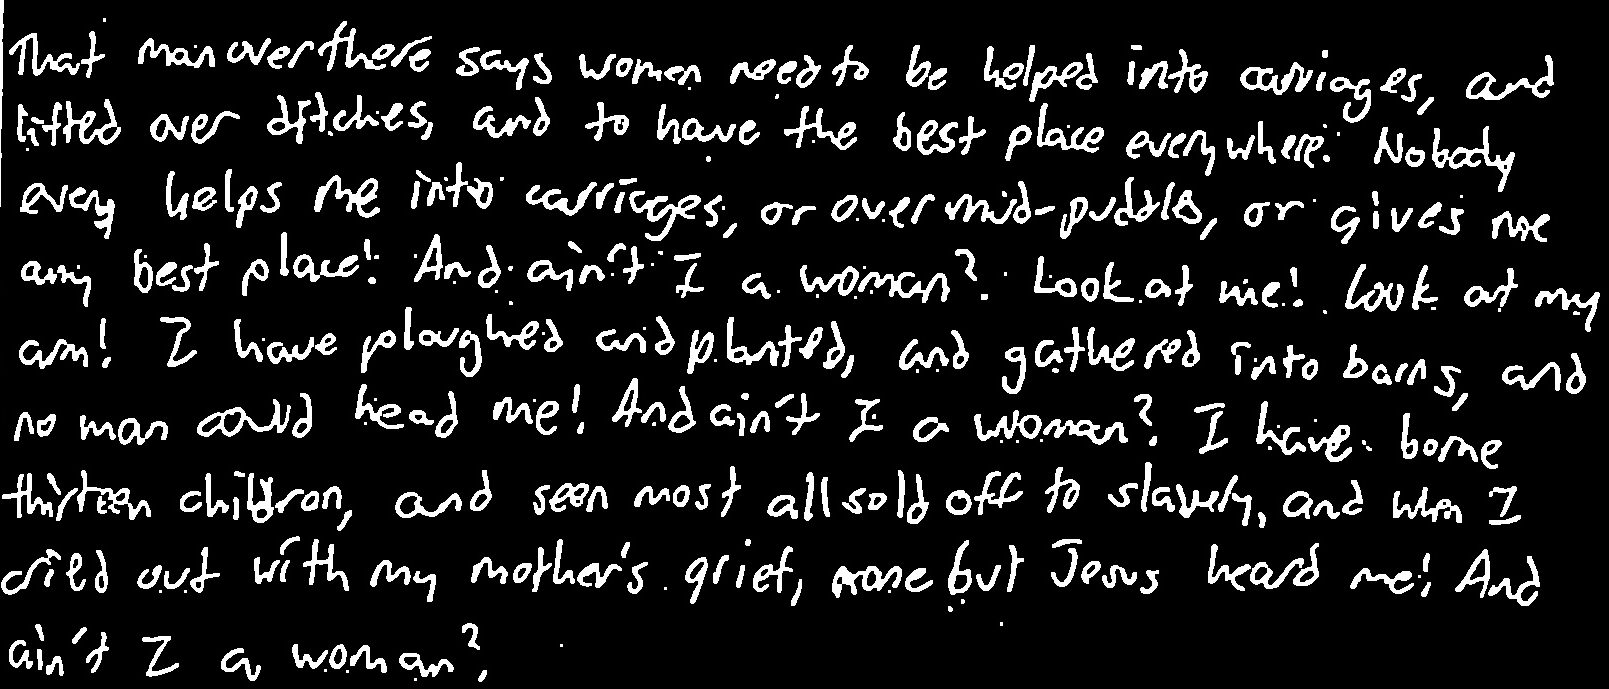 That man over there says women need to be helped into carriages, and
lifted over ditches, and to have the best place everywhere. Nobody
every helps me into carriages, or over mud-puddles, or gives me
any best place! And ain't I a woman? Look at me! Look at my
arm! I have ploughed and planted, and gathered into barns, and
no man could head me! And ain't I a woman? I have borne
thirteen children, and seen most all sold off to slavery, and when I
cried out with my mother's grief, none but Jesus heard me! And
ain't I a woman?